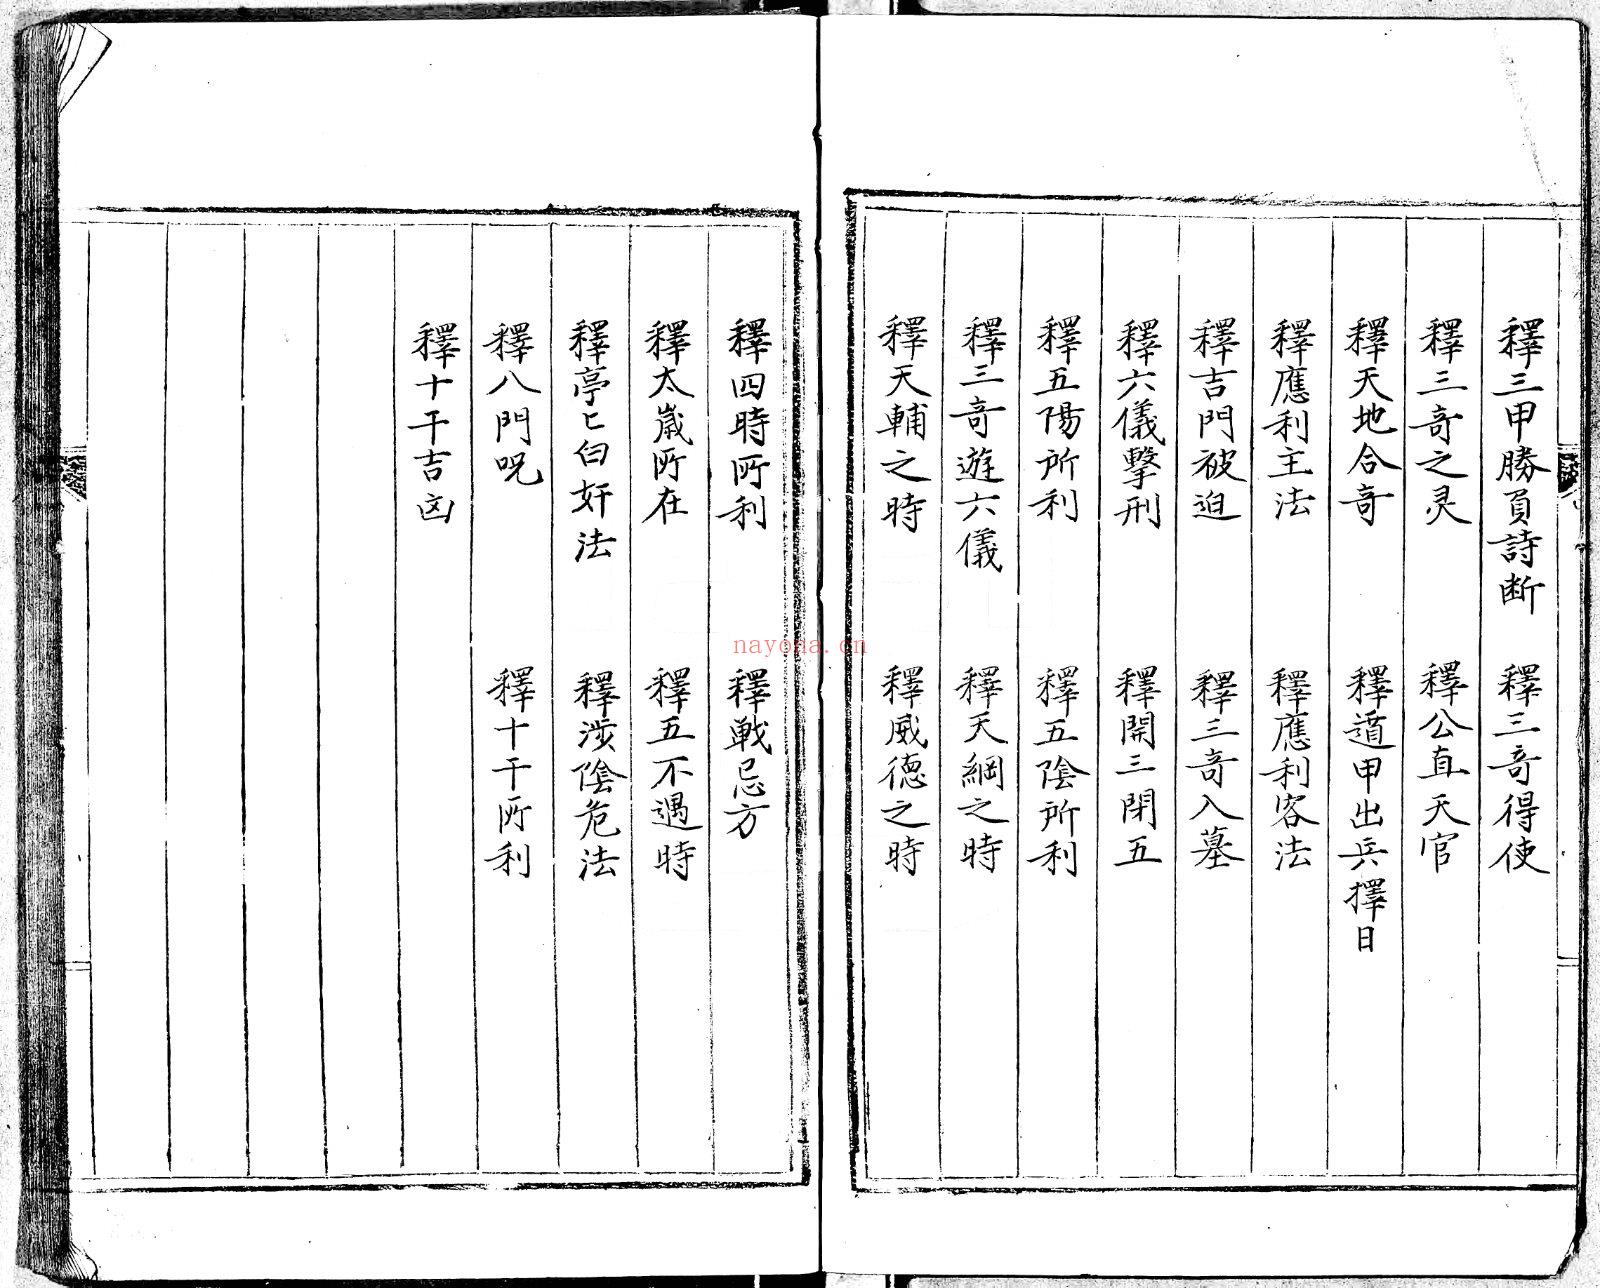 釋三甲勝負詩断　釋三奇得使
釋三奇之灵　釋公直天官
釋天地合奇　釋遁甲出兵擇日
釋應利主法　釋應利客法
釋吉門被迫　釋三奇入墓
釋六儀擊刑　釋開三閉五
釋五陽所利　釋五陰所利
釋三奇遊六儀　釋天綱之時
釋天輔之時　釋威德之時
釋四時所利　釋戰忌方
釋太歲所在　釋五不遇時
釋亭亭白奸法　釋涉陰危法
釋八門呪　釋十干所利
釋十干吉凶
nayona.cn